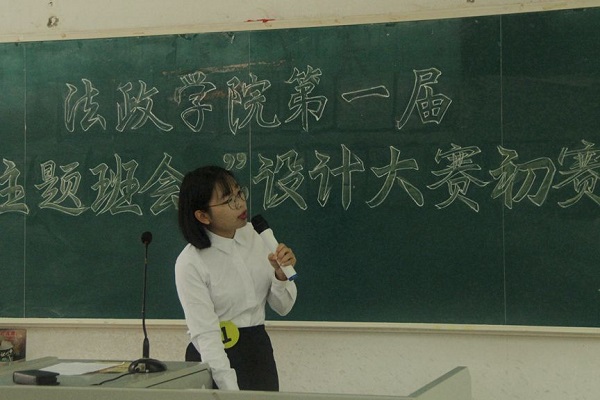 法政学院第一届
主题班会”设计大赛初赛
1